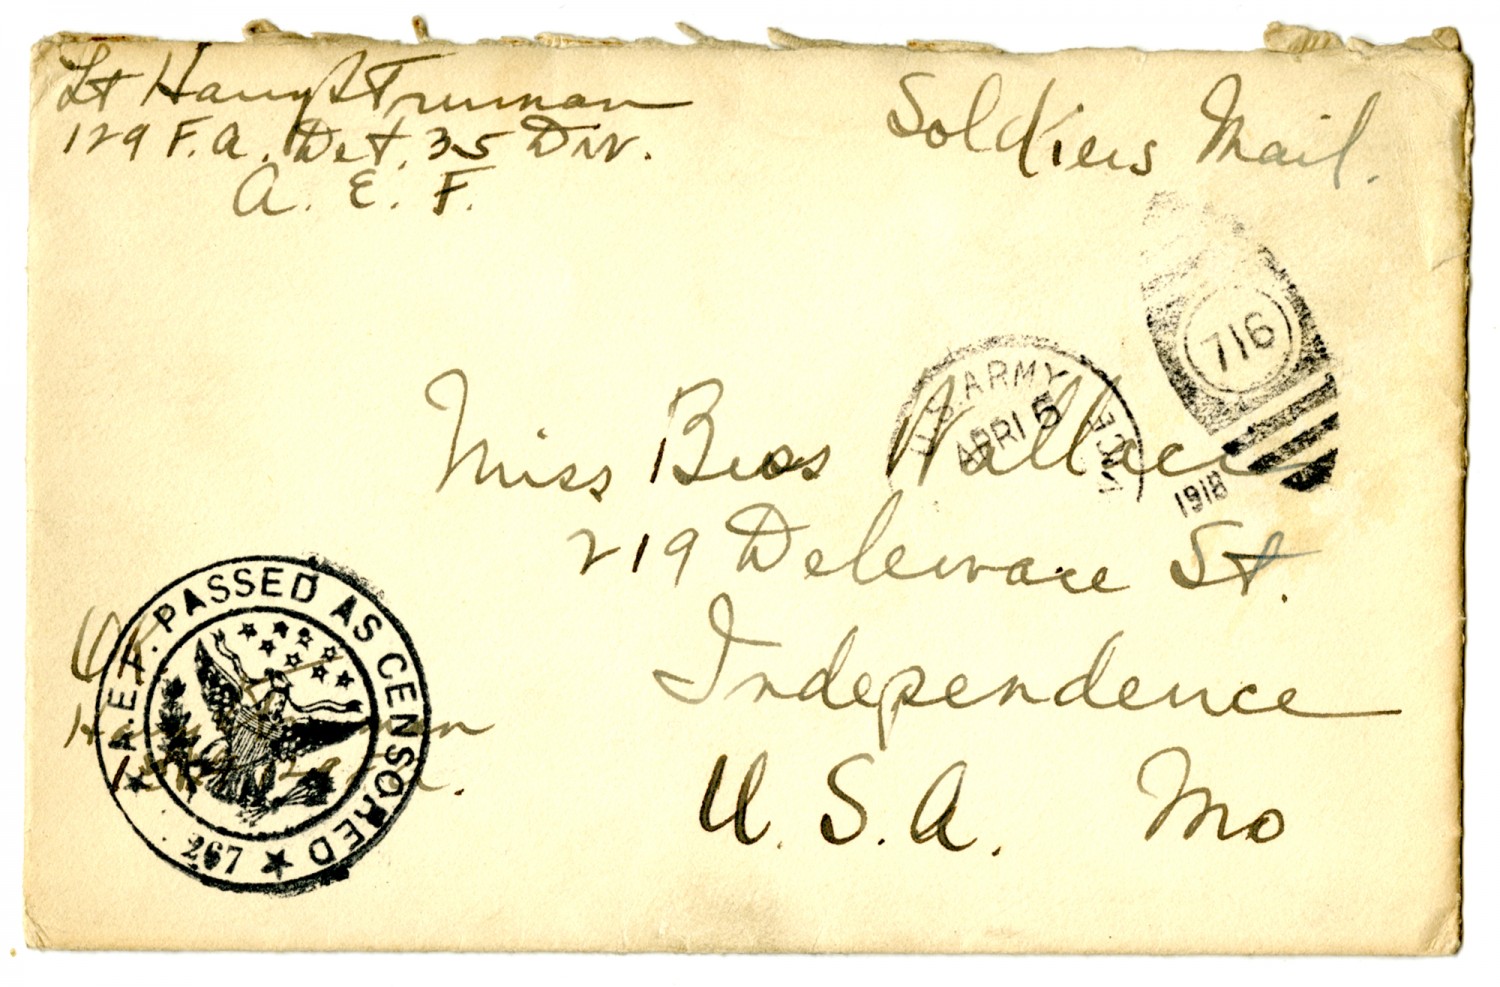 Lt Harry S Truman
129 F.A. Det. 35 Div.
A. E. F.
Soldiers Mail.
716
U.S. ARMY
APR 15
1918
Miss Bess Wallace
219 Deleware St.
Independence
U. S. A. Mo
A.E.F. PASSED AS CENSORED
267